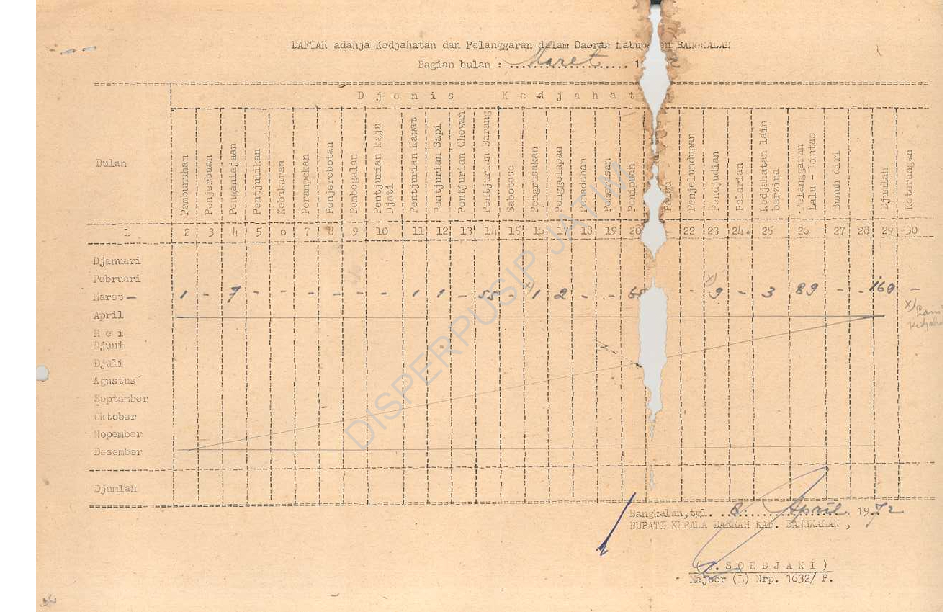 DAFTAR adanja Kedjahatan dan Pelanggaran dalam Daerah Kabupaten BANGKALAN
Bagian bulan : Maret 19 2
Djenis Kedjahat
Bulan
Pembunuhan
Penganiajaan
Pentjulikan
Kebakaran
Perampokan
Penjerobotan
Pembegalan
Pentjurian Kaju Djati
Pentjurian Kawat
Pentjurian Sapi
Pentjurian Chewan
Pentjurian Barang
Sabotase
Pengrusakan
Penggelapan
Pemalsuan
Penipuan
Penjelundupan
Pendjudian
Pelarian
Kedjahatan lain
Pelanggaran Lalu-lintas
Bunuh diri
Djumlah
Keterangan
1 2 3 4 5 6 7 8 9 10 11 12 13 14 15 16 17 18 19 20 22 23 24 25 26 27 28 29 30
Djanuari
Pebruari
Maret 1 - 7 - - - - - - 1 1 - - 1 2 - - - 3 89 - - 160
April
Mei
Djuni
Djuli
Agustus
September
Oktober
Nopember
Desember
Djumlah
Bangkalan, tgl. 8 April 1972
BUPATI KEPALA DAERAH KAB. BANGKALAN,
SOEDJAKI)
Major (L) Nrp. 1632/ P.
DISPERPUSIP JATIM